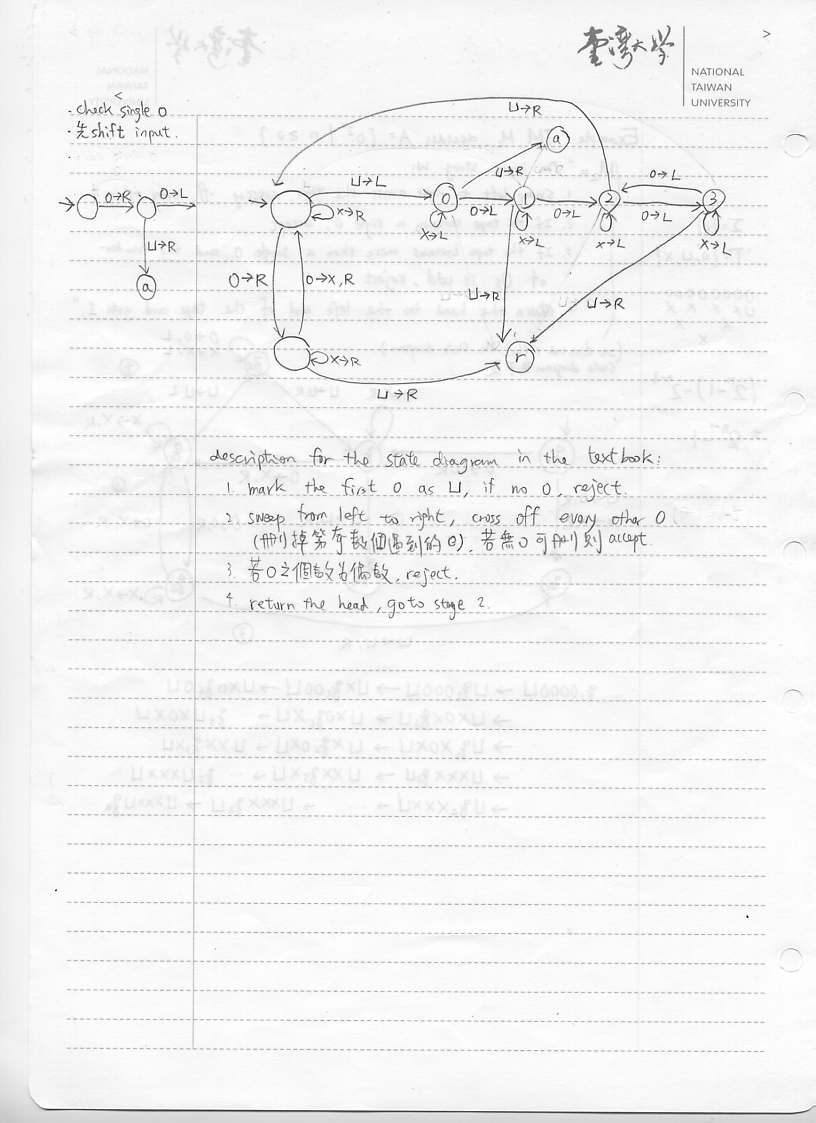 臺灣大學
NATIONAL
TAIWAN
UNIVERSITY
· check single 0
· 先 shift input.
0→R
0→L
⊔→R
a
⊔→R
⊔→L
x→R
0
x→L
0→L
⊔→R
a
1
x→L
0→L
⊔→R
2
x→L
0→L
0→L
3
x→L
⊔→R
0→R
0→x,R
x→R
⊔→R
r
description for the state diagram in the textbook:
1. mark the first 0 as ⊔, if no 0, reject.
2. sweep from left to right, cross off every other 0
(刪掉第奇數個遇到的0), 若無0可刪則 accept.
3. 若0之個數為偶數, reject.
4. return the head, go to stage 2.